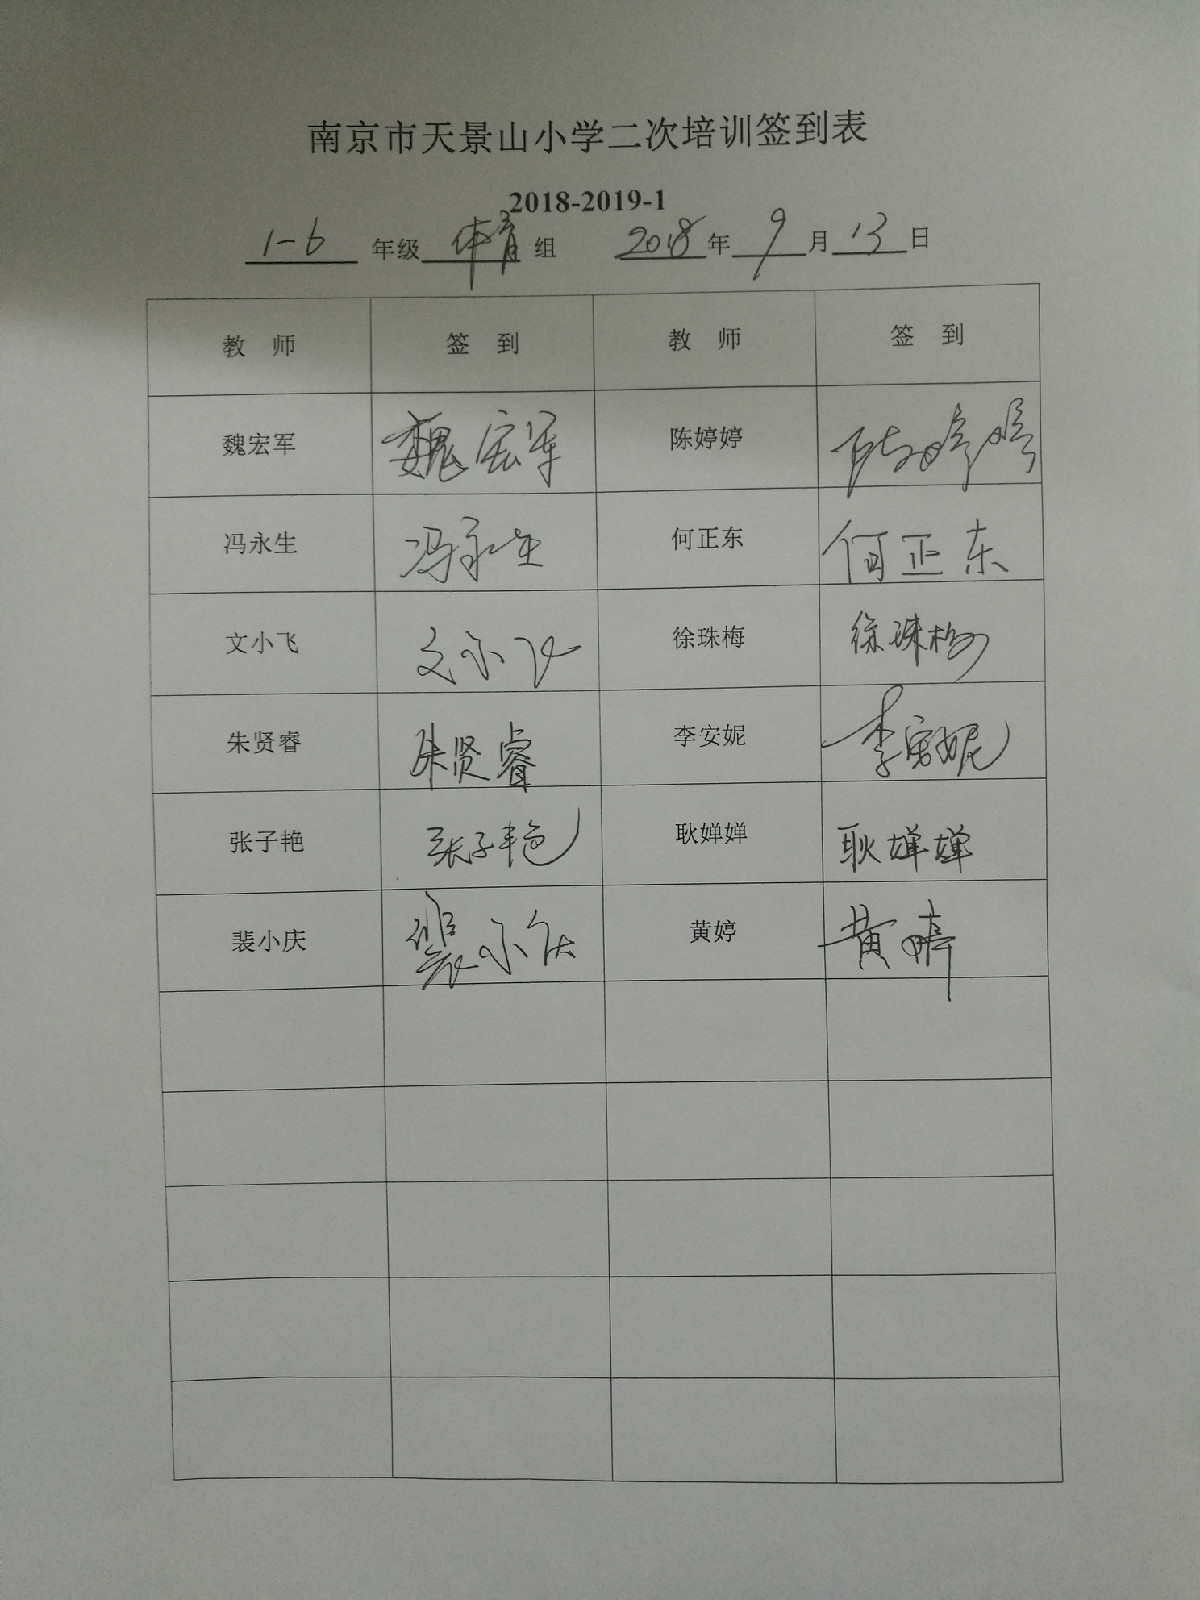 南京市天景山小学二次培训签到表
2018-2019-1
1-6 年级 体育 组 2018 年 9 月 13 日
教 师 签 到 教 师 签 到
魏宏军 魏宏军 陈婷婷 陈婷婷
冯永生 冯永生 何正东 何正东
文小飞 文小飞 徐珠梅 徐珠梅
朱贤睿 朱贤睿 李安妮 李安妮
张子艳 张子艳 耿婵婵 耿婵婵
裴小庆 裴小庆 黄婷 黄婷